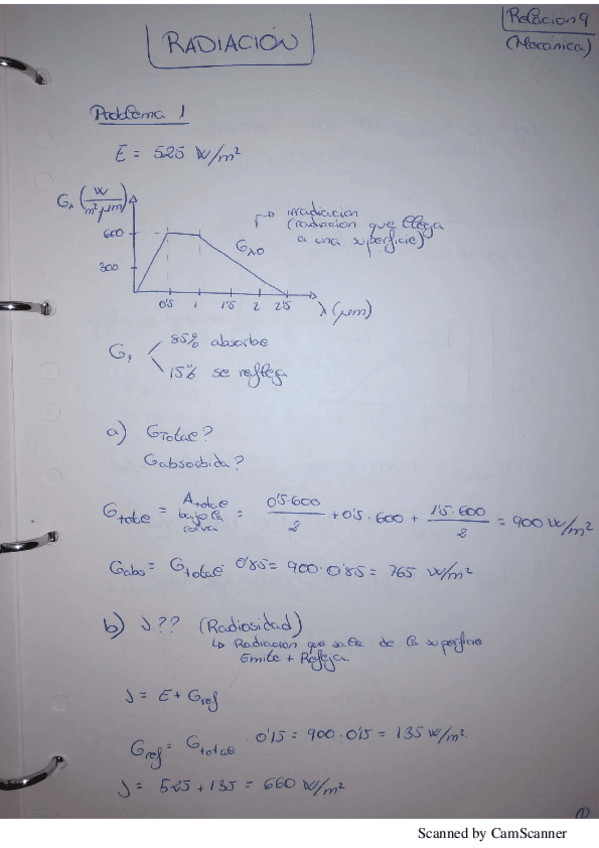 RADIACIÓN
Relación 9
(Mecánica)
Problema 1
E = 525 W/m²
Gλ (W/m²μm)
600
300
0'5 1 1'5 2 2'5 λ (μm)
Gλ0
→ irradiación
(radiación que llega
a una superficie)
G, < 85% absorbe
15% se refleja
a) Gtotal?
Gabsorbida?
Gtotal = Atotal bajo la curva = 0'5·600/2 + 0'5·600 + 1'5·600/2 = 900 W/m²
Gabs = Gtotal · 0'85 = 900·0'85 = 765 W/m²
b) J?? (Radiosidad)
↳ Radiación que sale de la superficie
Emite + Refleja
J = E + Gref
Gref = Gtotal · 0'15 = 900·0'15 = 135 W/m²
J = 525 + 135 = 660 W/m²
①
Scanned by CamScanner